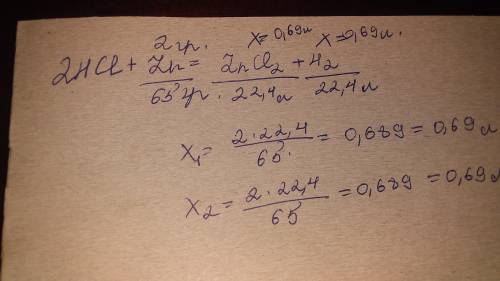 2 гр. X=0,69л X=0,69л.
2HCl + Zn = ZnCl2 + H2
65 гр. 22,4л 22,4л
X1= 2·22,4 / 65. = 0,689 = 0,69 л
X2 = 2·22,4 / 65 = 0,689 = 0,69 л